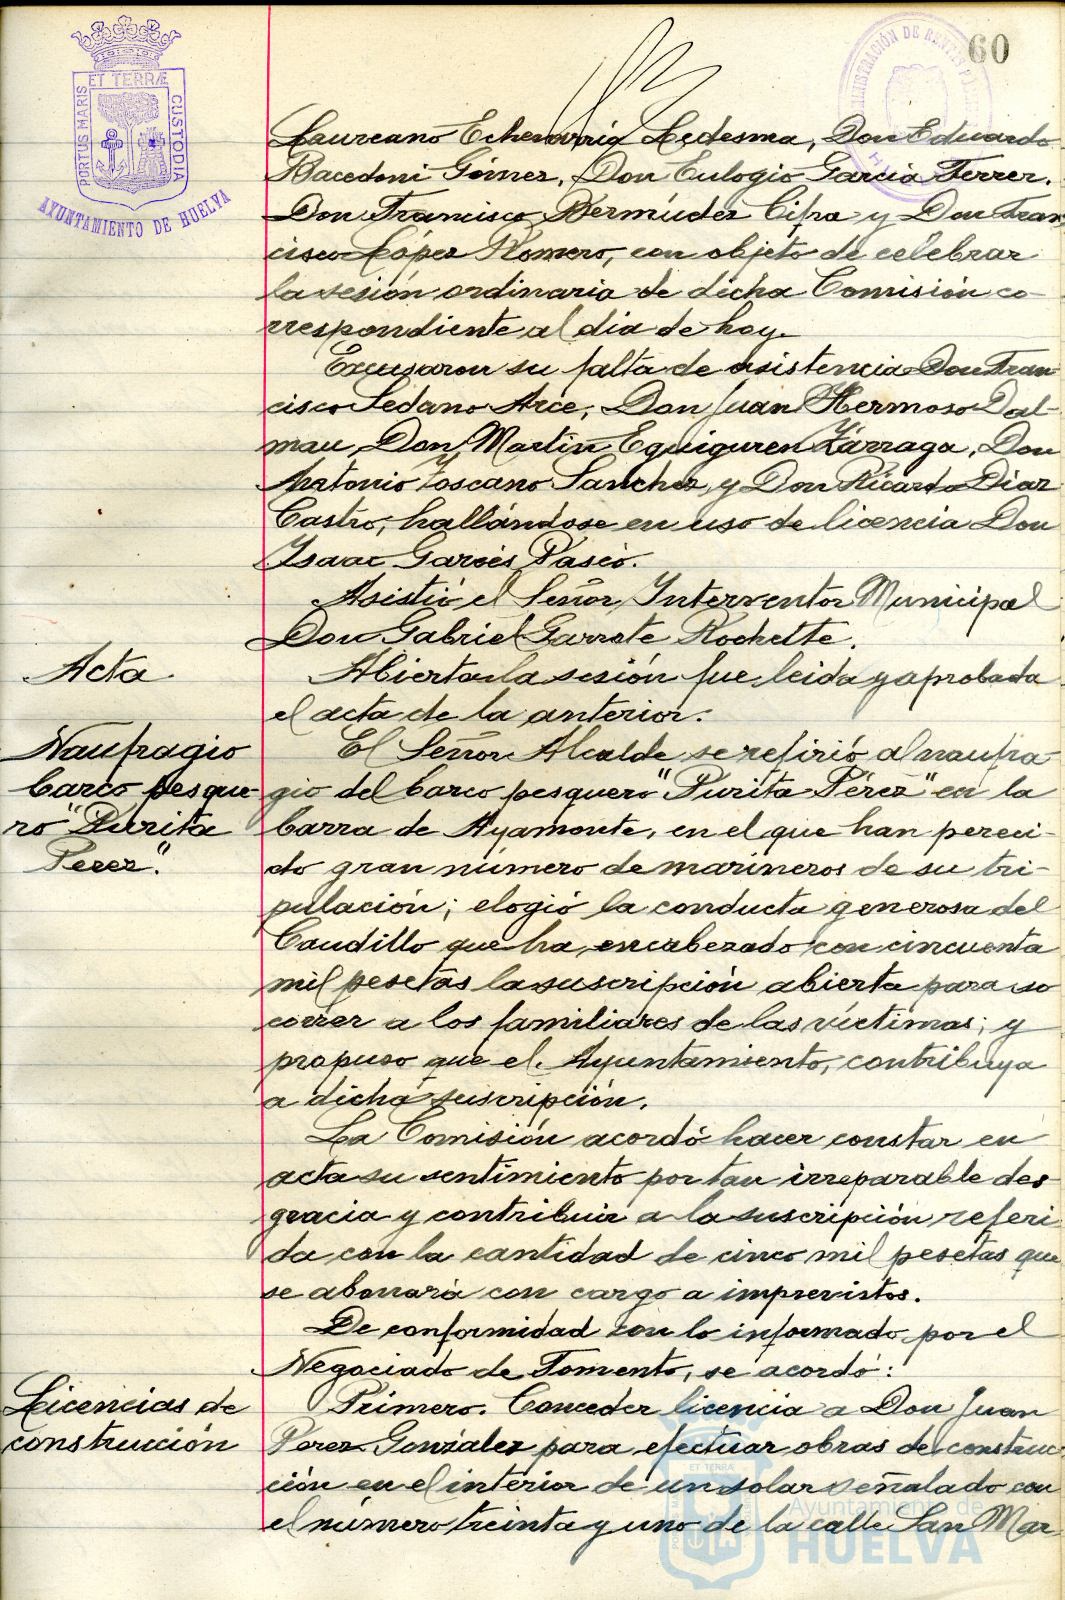 60
ET TERRÆ
PORTUS MARIS
CUSTODIA
AYUNTAMIENTO DE HUELVA
ADMINISTRACIÓN DE RENTAS
Laureano Echevarria Ledesma, Don Eduardo
Bacedoni Gómez, Don Eulogio Garcia Ferrer,
Don Francisco Bermúdez Cifra y Don Fran
cisco López Romero, con objeto de celebrar
la sesión ordinaria de dicha Comisión co-
rrespondiente al dia de hoy.
Excusaron su falta de asistencia Don Fran
cisco Sedano Arce, Don Juan Hermoso Dal-
mau, Don Martin Eguiguren Zárraga, Don
Antonio Toscano Sanchez, y Don Ricardo Diaz
Castro, hallándose en uso de licencia Don
Isaac Garcés Pascó.
Asistió el Señor Interventor Municipal
Don Gabriel Garrote Rochette.
Acta.
Abierta la sesión fue leida y aprobada
el acta de la anterior.
Naufragio
barco pesque
ro "Purita
Perez".
El Señor Alcalde se refirió al naufra-
gio del barco pesquero "Purita Pérez" en la
barra de Ayamonte, en el que han pereci-
do gran número de marineros de su tri-
pulación; elogió la conducta generosa del
Caudillo que ha encabezado con cincuenta
mil pesetas la suscripción abierta para so
correr a los familiares de las victimas; y
propuso que el Ayuntamiento, contribuya
a dicha suscripción.
La Comisión acordó hacer constar en
acta su sentimiento por tan irreparable des-
gracia y contribuir a la suscripción referi
da con la cantidad de cinco mil pesetas que
se abonará con cargo a imprevistos.
De conformidad con lo informado por el
Negociado de Fomento, se acordó:
Licencias de
construcción
Primero. Conceder licencia a Don Juan
Perez Gonzalez para efectuar obras de construc
ción en el interior de un solar señalado con
el número treinta y uno de la calle San Mar
Ayuntamiento de
HUELVA